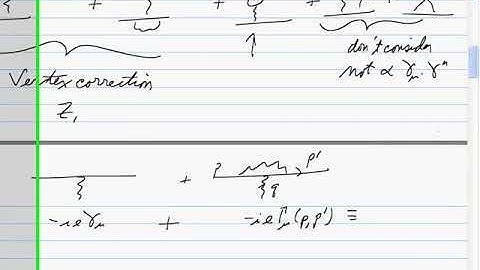 + + + +
don't consider
not ∝ γμ·γⁿ
Vertex correction
Z₁
+ p p'
q
-ieγμ + -ieΓμ(p,p') ≡